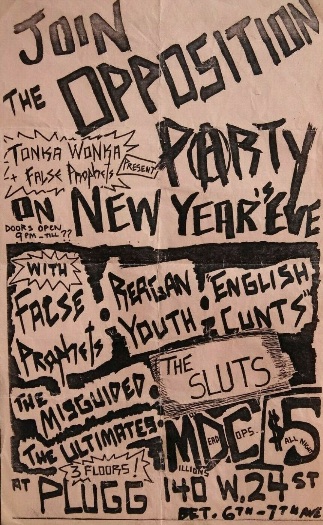 JOIN
THE OPPOSITION
TONKA WONKA
+ FALSE Prophets
PRESENT
PARTY
ON NEW YEAR'S EVE
DOORS OPEN
9PM - TILL ??
WITH
FALSE
Prophets
REAGAN
YOUTH
"ENGLISH
CUNTS"
THE
SLUTS
THE
MISGUIDED
THE ULTIMATES
MDC
EAD
OPS.
ILLIONS
$5
ALL NIGHT
3 FLOORS!
AT PLUGG
140 W. 24 ST
BET. 6TH-7TH AVE